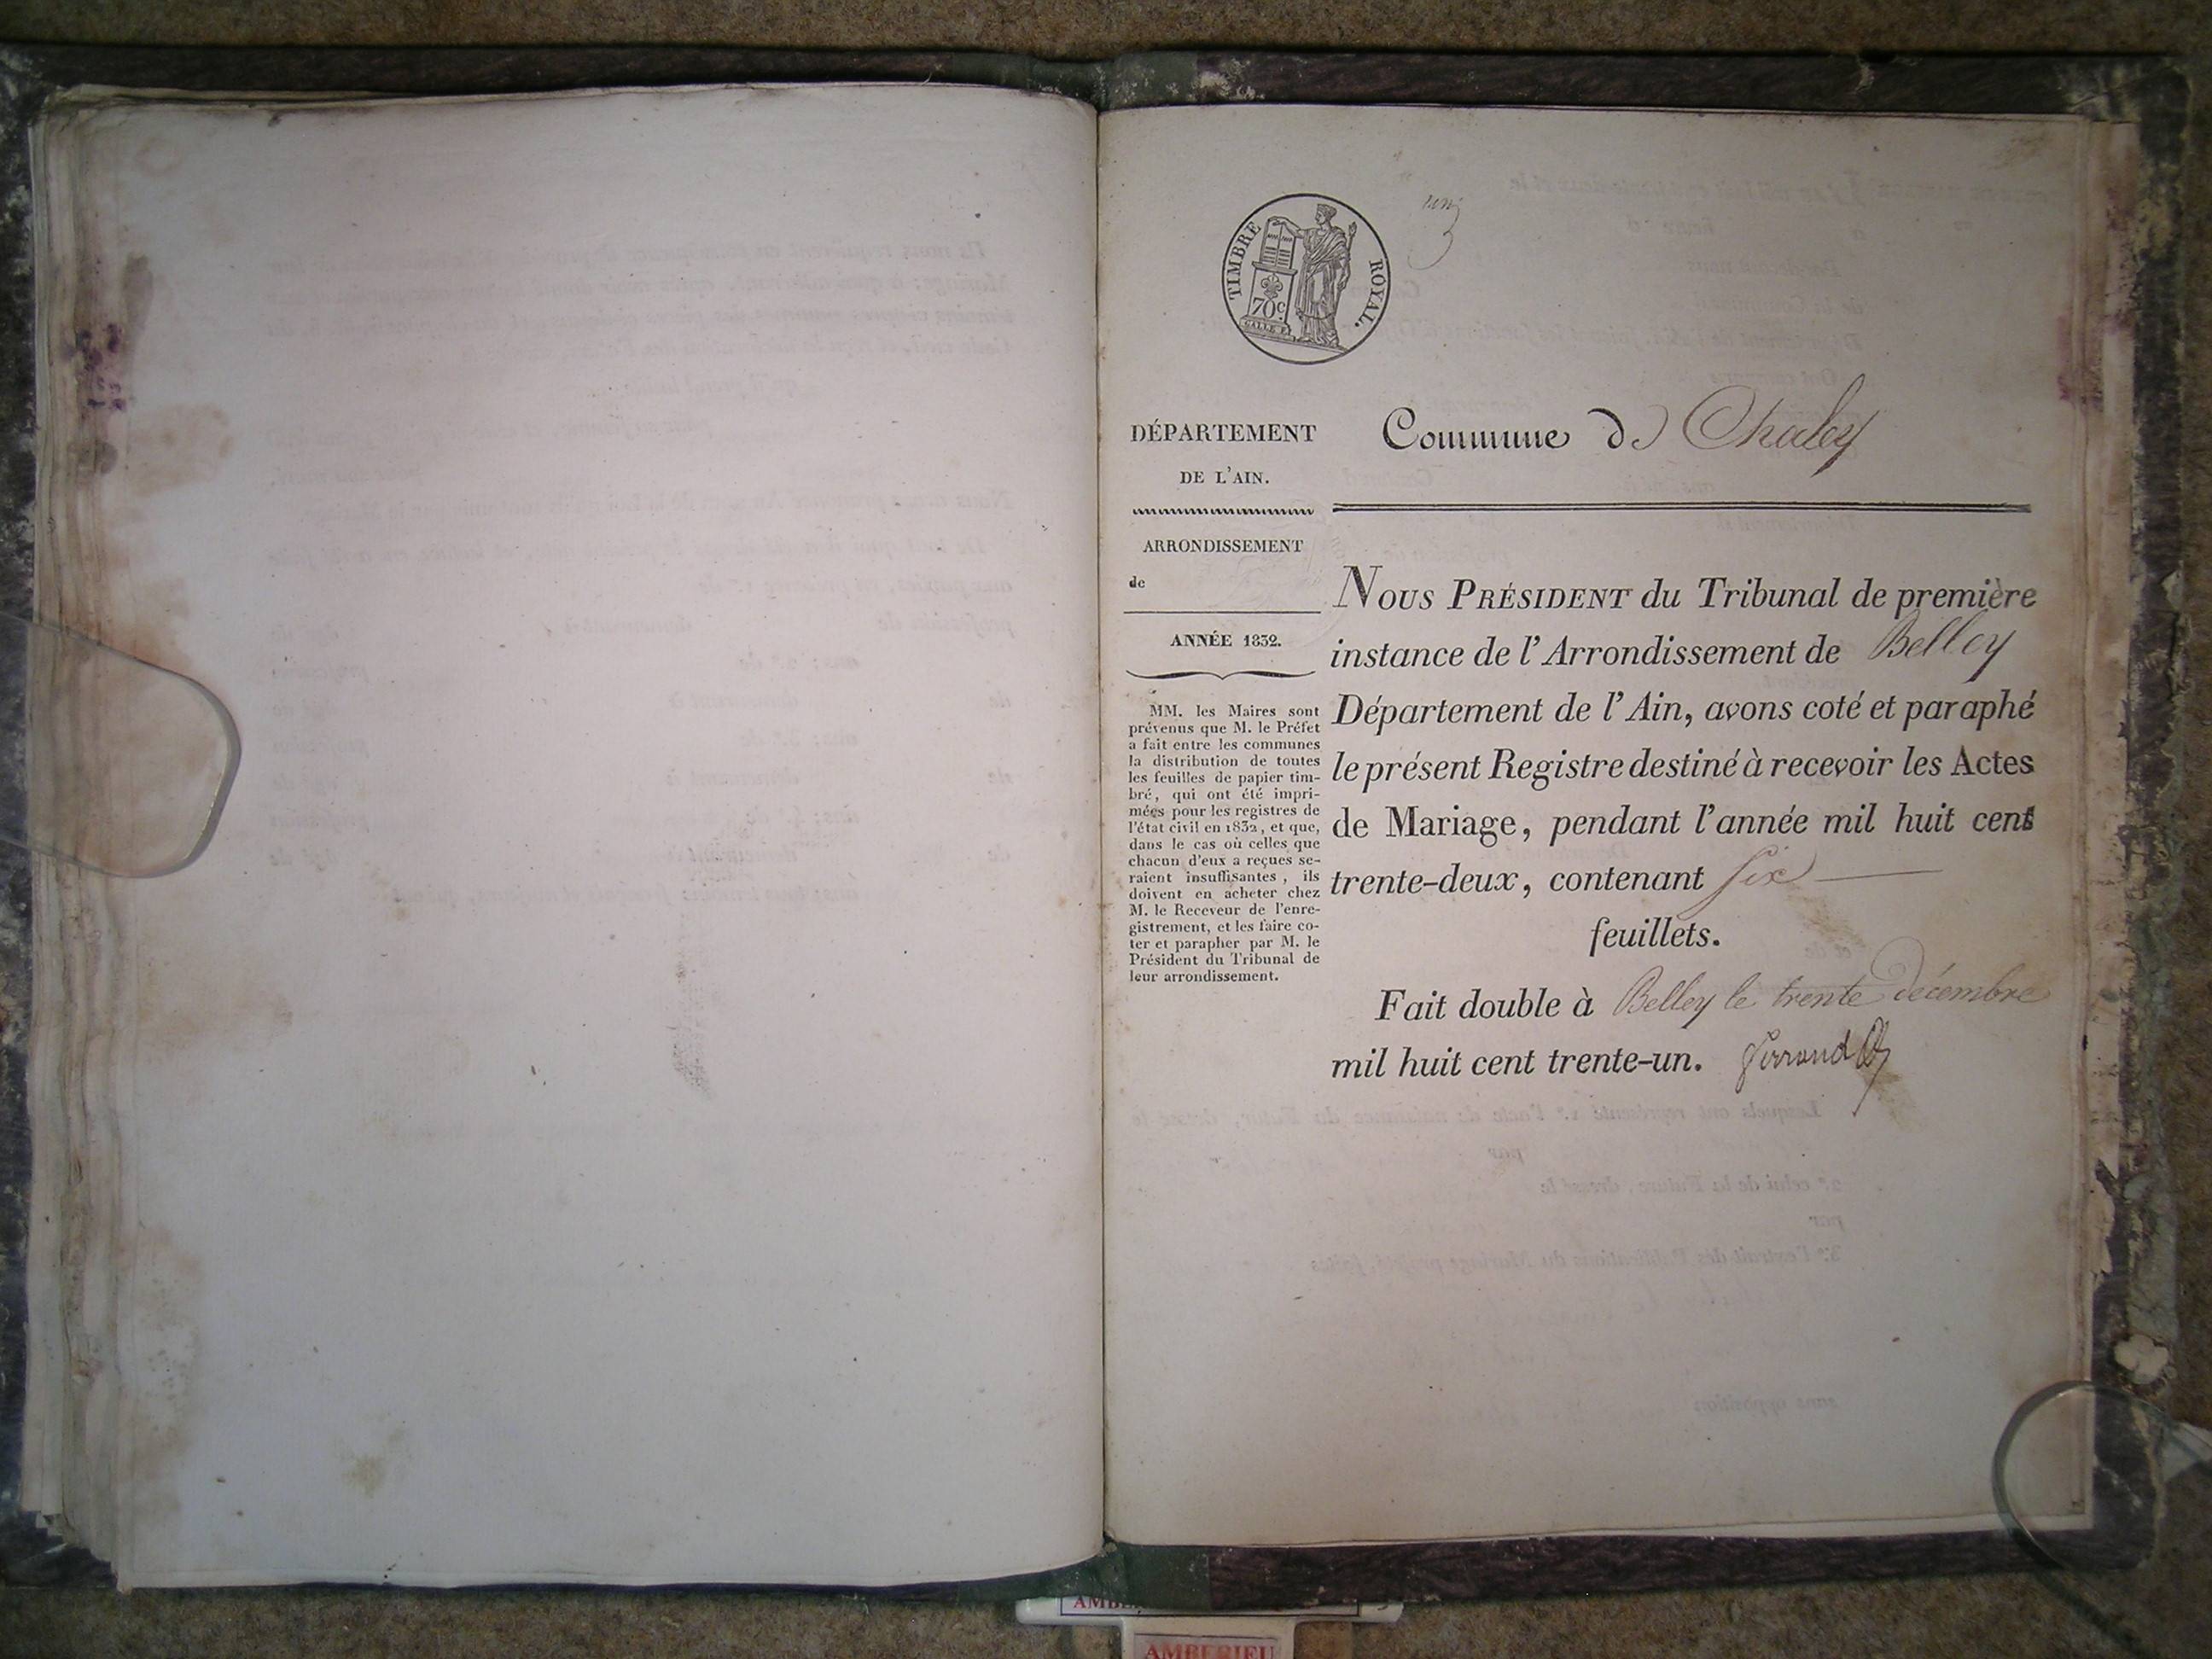 TIMBRE ROYAL.
70c
un
DÉPARTEMENT
DE L'AIN.
ARRONDISSEMENT
de
ANNÉE 1832.
MM. les Maires sont
prévenus que M. le Préfet
a fait entre les communes
la distribution de toutes
les feuilles de papier tim-
bré, qui ont été impri-
mées pour les registres de
l'état civil en 1832, et que,
dans le cas où celles que
chacun d'eux a reçues se-
raient insuffisantes, ils
doivent en acheter chez
M. le Receveur de l'enre-
gistrement, et les faire co-
ter et parapher par M. le
Président du Tribunal de
leur arrondissement.
Commune de Chaley
NOUS PRÉSIDENT du Tribunal de première
instance de l'Arrondissement de Belley
Département de l'Ain, avons coté et paraphé
le présent Registre destiné à recevoir les Actes
de Mariage, pendant l'année mil huit cent
trente-deux, contenant six
feuillets.
Fait double à Belley le trente décembre
mil huit cent trente-un.
AMBERIEU